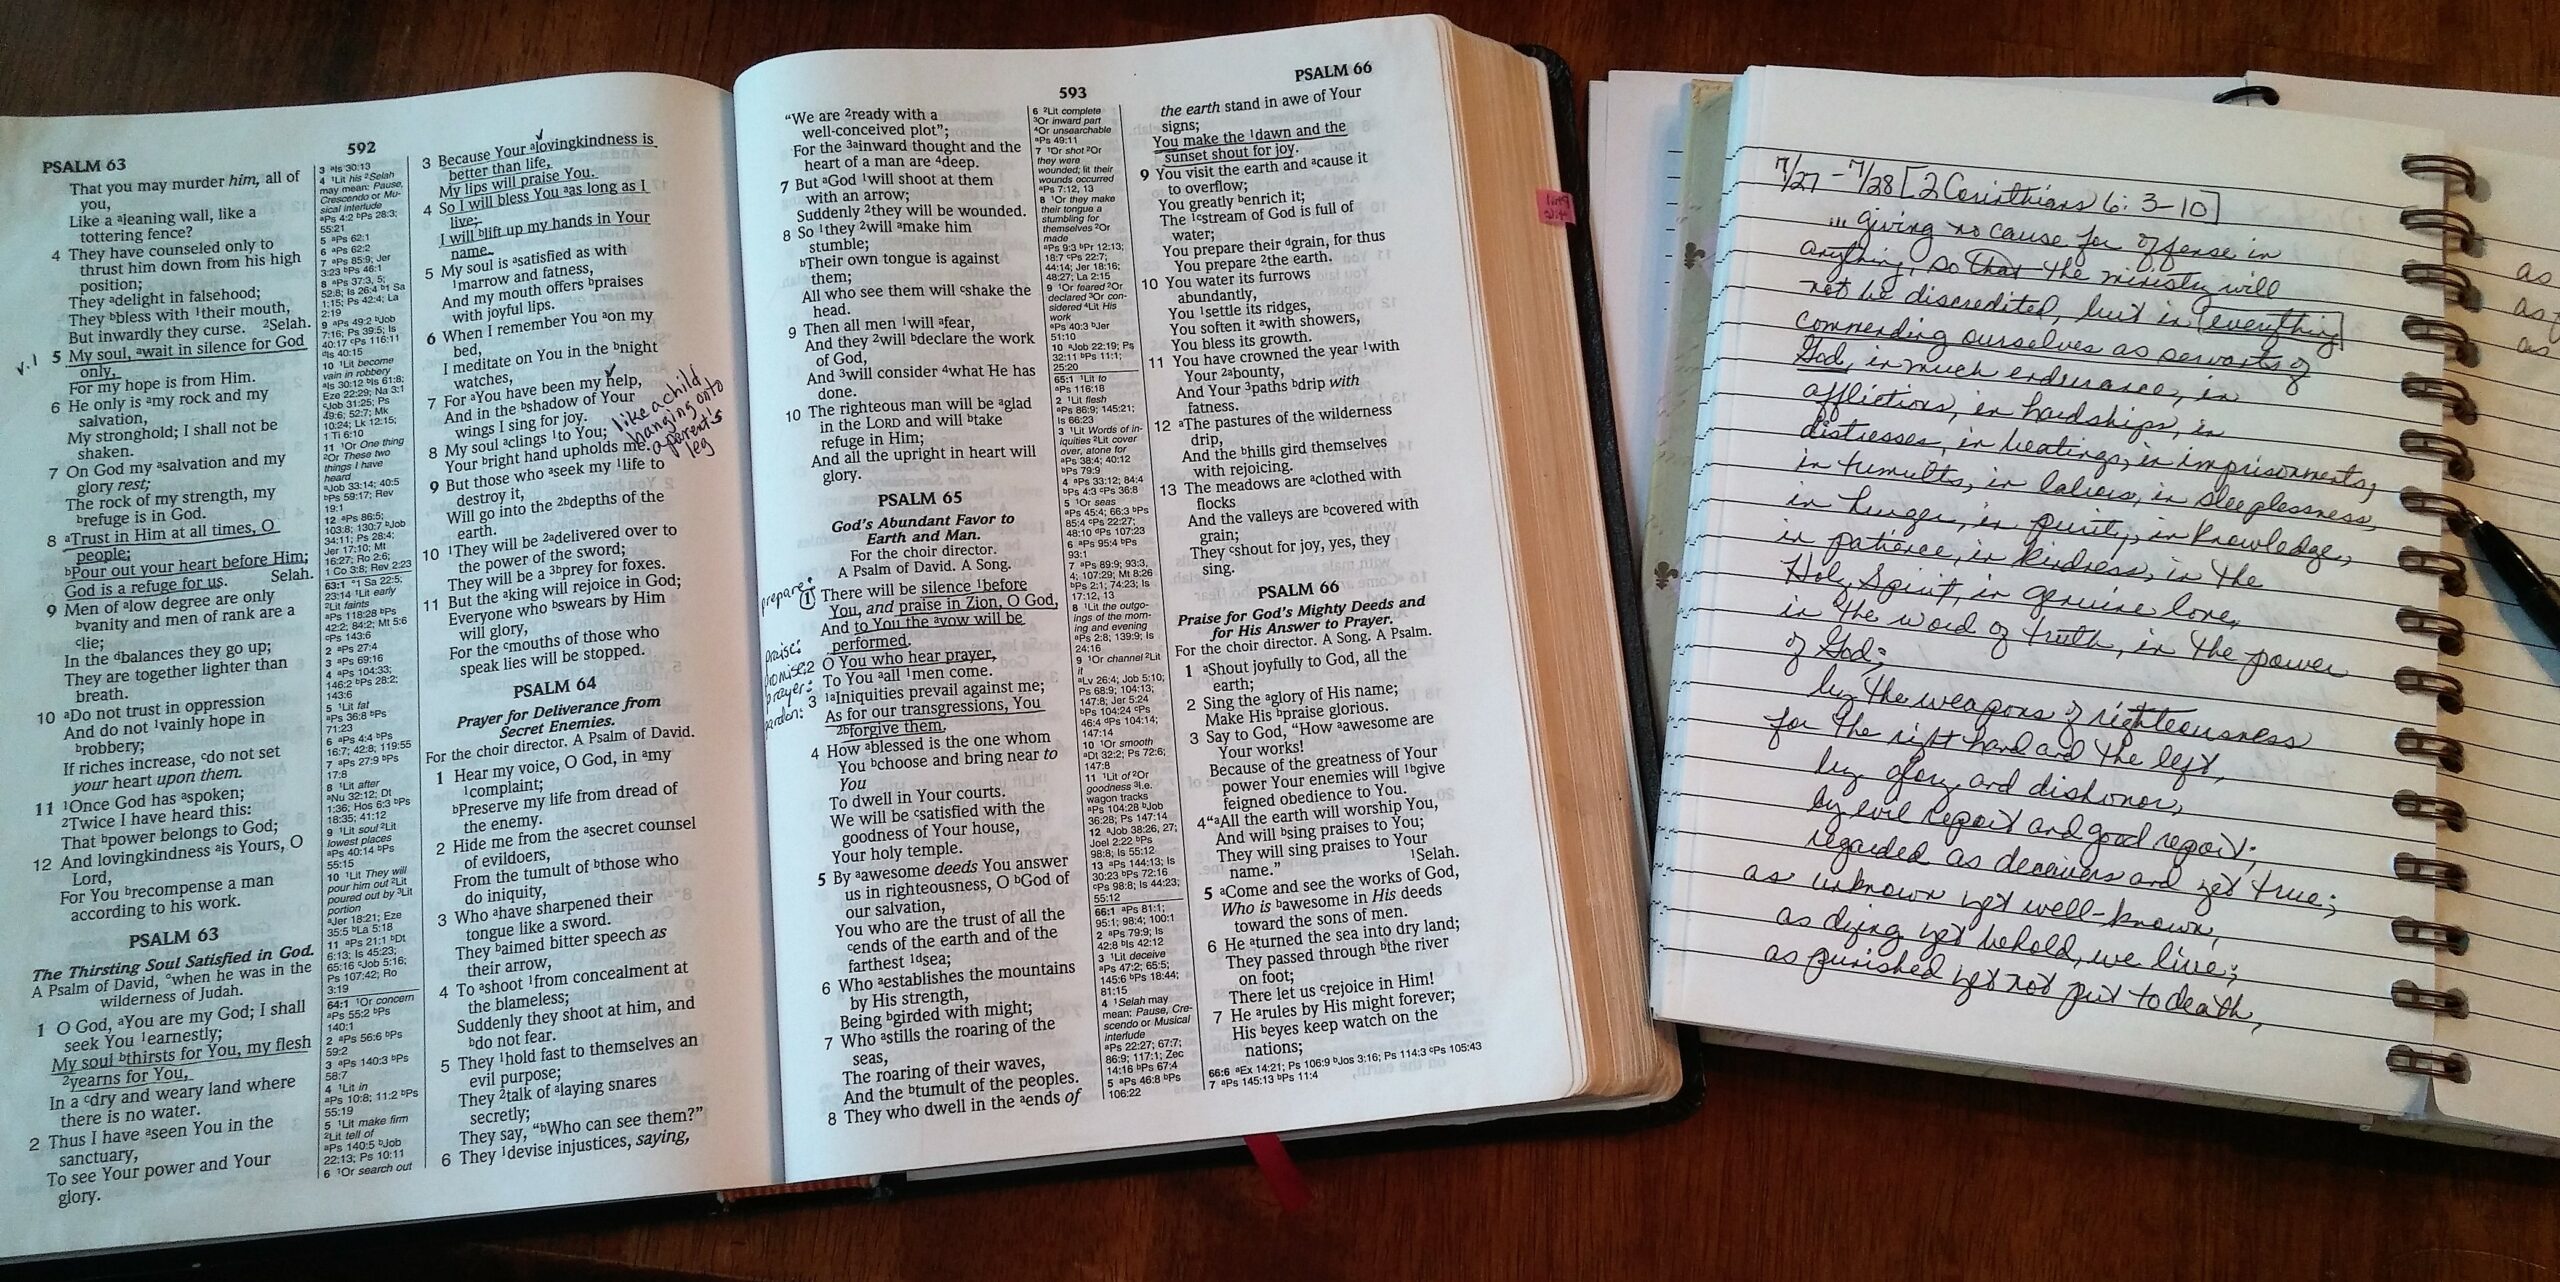 PSALM 63
592
That you may murder him, all of
you,
Like a ᵃleaning wall, like a
tottering fence?
4 They have counseled only to
thrust him down from his high
position;
They ᵃdelight in falsehood;
They ᵇbless with ¹their mouth,
But inwardly they curse. ²Selah.
v.1
5 My soul, ᵃwait in silence for God
only,
For my hope is from Him.
6 He only is ᵃmy rock and my
salvation,
My stronghold; I shall not be
shaken.
7 On God my ᵃsalvation and my
glory rest;
The rock of my strength, my
ᵇrefuge is in God.
8 ᵃTrust in Him at all times, O
people;
ᵇPour out your heart before Him;
God is a refuge for us. Selah.
9 Men of ᵃlow degree are only
ᵇvanity and men of rank are a
ᶜlie;
In the ᵈbalances they go up;
They are together lighter than
breath.
10 ᵃDo not trust in oppression
And do not ¹vainly hope in
ᵇrobbery;
If riches increase, ᶜdo not set
your heart upon them.
11 ¹Once God has ᵃspoken;
²Twice I have heard this:
That ᵇpower belongs to God;
12 And lovingkindness ᵃis Yours, O
Lord,
For You ᵇrecompense a man
according to his work.
PSALM 63
The Thirsting Soul Satisfied in God.
A Psalm of David, ᵒwhen he was in the
wilderness of Judah.
1 O God, ᵃYou are my God; I shall
seek You ¹earnestly;
My soul ᵇthirsts for You, my flesh
²yearns for You,
In a ᶜdry and weary land where
there is no water.
2 Thus I have ᵃseen You in the
sanctuary,
To see Your power and Your
glory.
3 ᵃIs 30:13
4 ¹Lit his ²Selah
may mean: Pause,
Crescendo or Mu-
sical interlude
ᵃPs 4:2 ᵇPs 28:3;
55:21
5 ᵃPs 62:1
6 ᵃPs 62:2
7 ᵃPs 85:9; Jer
3:23 ᵇPs 46:1
8 ᵃPs 37:3, 5;
52:8; Is 26:4 ᵇ1 Sa
1:15; Ps 42:4; La
2:19
9 ᵃPs 49:2 ᵇJob
7:16; Ps 39:5; Is
40:17 ᶜPs 116:11
ᵈIs 40:15
10 ¹Lit become
vain in robbery
ᵃIs 30:12 ᵇIs 61:8;
Eze 22:29; Na 3:1
ᶜJob 31:25; Ps
49:6; 52:7; Mk
10:24; Lk 12:15;
1 Ti 6:10
11 ¹Or One thing
²Or These two
things I have
heard
ᵃJob 33:14; 40:5
ᵇPs 59:17; Rev
19:1
12 ᵃPs 86:5;
103:8; 130:7 ᵇJob
34:11; Ps 28:4;
Jer 17:10; Mt
16:27; Ro 2:6;
1 Co 3:8; Rev 2:23
63:1 °1 Sa 22:5;
23:14 ¹Lit early
²Lit faints
ᵃPs 118:28 ᵇPs
42:2; 84:2; Mt 5:6
ᶜPs 143:6
2 ᵃPs 27:4
3 ᵃPs 69:16
4 ᵃPs 104:33;
146:2 ᵇPs 28:2;
143:6
5 ¹Lit fat
ᵃPs 36:8 ᵇPs
71:23
6 ᵃPs 4:4 ᵇPs
16:7; 42:8; 119:55
7 ᵃPs 27:9 ᵇPs
17:8
8 ¹Lit after
ᵃNu 32:12; Dt
1:36; Hos 6:3 ᵇPs
18:35; 41:12
9 ¹Lit soul ²Lit
lowest places
ᵃPs 40:14 ᵇPs
55:15
10 ¹Lit They will
pour him out ²Lit
poured out by ³Lit
portion
ᵃJer 18:21; Eze
35:5 ᵇLa 5:18
11 ᵃPs 21:1 ᵇDt
6:13; Is 45:23;
65:16 ᶜJob 5:16;
Ps 107:42; Ro
3:19
64:1 ¹Or concern
ᵃPs 55:2 ᵇPs
140:1
2 ᵃPs 56:6 ᵇPs
59:2
3 ᵃPs 140:3 ᵇPs
58:7
4 ¹Lit in
ᵃPs 10:8; 11:2 ᵇPs
55:19
5 ¹Lit make firm
²Lit tell of
ᵃPs 140:5 ᵇJob
22:13; Ps 10:11
6 ¹Or search out
3 Because Your ᵃlovingkindness is
better than life,
My lips will praise You.
4 So I will bless You ᵃas long as I
live;
I will ᵇlift up my hands in Your
name.
5 My soul is ᵃsatisfied as with
¹marrow and fatness,
And my mouth offers ᵇpraises
with joyful lips.
6 When I remember You ᵃon my
bed,
I meditate on You in the ᵇnight
watches,
7 For ᵃYou have been my help,
And in the ᵇshadow of Your
wings I sing for joy.
8 My soul ᵃclings ¹to You;
Your ᵇright hand upholds me.
like a child
hanging onto
a parent's
leg
9 But those who ᵃseek my ¹life to
destroy it,
Will go into the ²ᵇdepths of the
earth.
10 ¹They will be ²ᵃdelivered over to
the power of the sword;
They will be a ³ᵇprey for foxes.
11 But the ᵃking will rejoice in God;
Everyone who ᵇswears by Him
will glory,
For the ᶜmouths of those who
speak lies will be stopped.
PSALM 64
Prayer for Deliverance from
Secret Enemies.
For the choir director. A Psalm of David.
1 Hear my voice, O God, in ᵃmy
¹complaint;
ᵇPreserve my life from dread of
the enemy.
2 Hide me from the ᵃsecret counsel
of evildoers,
From the tumult of ᵇthose who
do iniquity,
3 Who ᵃhave sharpened their
tongue like a sword.
They ᵇaimed bitter speech as
their arrow,
4 To ᵃshoot ¹from concealment at
the blameless;
Suddenly they shoot at him, and
ᵇdo not fear.
5 They ¹hold fast to themselves an
evil purpose;
They ²talk of ᵃlaying snares
secretly;
They say, “ᵇWho can see them?”
6 They ¹devise injustices, saying,
593
PSALM 66
“We are ²ready with a
well-conceived plot”;
For the ³ᵃinward thought and the
heart of a man are ⁴deep.
7 But ᵃGod ¹will shoot at them
with an arrow;
Suddenly ²they will be wounded.
8 So ¹they ²will ᵃmake him
stumble;
ᵇTheir own tongue is against
them;
All who see them will ᶜshake the
head.
9 Then all men ¹will ᵃfear,
And they ²will ᵇdeclare the work
of God,
And ³will consider ⁴what He has
done.
10 The righteous man will be ᵃglad
in the LORD and will ᵇtake
refuge in Him;
And all the upright in heart will
glory.
PSALM 65
God's Abundant Favor to
Earth and Man.
For the choir director.
A Psalm of David. A Song.
prepare:
1 There will be silence ¹before
You, and praise in Zion, O God,
And to You the ᵃvow will be
performed.
praise:
promise:
prayer:
pardon:
2 O You who hear prayer,
To You ᵃall ¹men come.
3 ¹ᵃIniquities prevail against me;
As for our transgressions, You
²ᵇforgive them.
4 How ᵃblessed is the one whom
You ᵇchoose and bring near to
You
To dwell in Your courts.
We will be ᶜsatisfied with the
goodness of Your house,
Your holy temple.
5 By ᵃawesome deeds You answer
us in righteousness, O ᵇGod of
our salvation,
You who are the trust of all the
ᶜends of the earth and of the
farthest ¹ᵈsea;
6 Who ᵃestablishes the mountains
by His strength,
Being ᵇgirded with might;
7 Who ᵃstills the roaring of the
seas,
The roaring of their waves,
And the ᵇtumult of the peoples.
8 They who dwell in the ᵃends of
6 ²Lit complete
³Or inward part
⁴Or unsearchable
ᵃPs 49:11
7 ¹Or shot ²Or
they were
wounded; lit their
wounds occurred
ᵃPs 7:12, 13
8 ¹Or they make
their tongue a
stumbling for
themselves ²Or
made
ᵃPs 9:3 ᵇPr 12:13;
18:7 ᶜPs 22:7;
44:14; Jer 18:16;
48:27; La 2:15
9 ¹Or feared ²Or
declared ³Or con-
sidered ⁴Lit His
work
ᵃPs 40:3 ᵇJer
51:10
10 ᵃJob 22:19; Ps
32:11 ᵇPs 11:1;
25:20
65:1 ¹Lit to
ᵃPs 116:18
2 ¹Lit flesh
ᵃPs 86:9; 145:21;
Is 66:23
3 ¹Lit Words of in-
iquities ²Lit cover
over, atone for
ᵃPs 38:4; 40:12
ᵇPs 79:9
4 ᵃPs 33:12; 84:4
ᵇPs 4:3 ᶜPs 36:8
5 ¹Or seas
ᵃPs 45:4; 66:3 ᵇPs
85:4 ᶜPs 22:27;
48:10 ᵈPs 107:23
6 ᵃPs 95:4 ᵇPs
93:1
7 ᵃPs 89:9; 93:3,
4; 107:29; Mt 8:26
ᵇPs 2:1; 74:23; Is
17:12, 13
8 ¹Lit the outgo-
ings of the morn-
ing and evening
ᵃPs 2:8; 139:9; Is
24:16
9 ¹Or channel ²Lit
it
ᵃLv 26:4; Job 5:10;
Ps 68:9; 104:13;
147:8; Jer 5:24
ᵇPs 104:24 ᶜPs
46:4 ᵈPs 104:14;
147:14
10 ¹Or smooth
ᵃDt 32:2; Ps 72:6;
147:8
11 ¹Lit of ²Or
goodness ³I.e.
wagon tracks
ᵃPs 104:28 ᵇJob
36:28; Ps 147:14
12 ᵃJob 38:26, 27;
Joel 2:22 ᵇPs
98:8; Is 55:12
13 ᵃPs 144:13; Is
30:23 ᵇPs 72:16
ᶜPs 98:8; Is 44:23;
55:12
66:1 ᵃPs 81:1;
95:1; 98:4; 100:1
2 ᵃPs 79:9; Is
42:8 ᵇIs 42:12
3 ¹Lit deceive
ᵃPs 47:2; 65:5;
145:6 ᵇPs 18:44;
81:15
4 ¹Selah may
mean: Pause, Cre-
scendo or Musical
interlude
ᵃPs 22:27; 67:7;
86:9; 117:1; Zec
14:16 ᵇPs 67:4
5 ᵃPs 46:8 ᵇPs
106:22
the earth stand in awe of Your
signs;
You make the ¹dawn and the
sunset shout for joy.
9 You visit the earth and ᵃcause it
to overflow;
You greatly ᵇenrich it;
The ¹ᶜstream of God is full of
water;
You prepare their ᵈgrain, for thus
You prepare ²the earth.
10 You water its furrows
abundantly,
You ¹settle its ridges,
You soften it ᵃwith showers,
You bless its growth.
11 You have crowned the year ¹with
Your ²ᵃbounty,
And Your ³paths ᵇdrip with
fatness.
12 ᵃThe pastures of the wilderness
drip,
And the ᵇhills gird themselves
with rejoicing.
13 The meadows are ᵃclothed with
flocks
And the valleys are ᵇcovered with
grain;
They ᶜshout for joy, yes, they
sing.
PSALM 66
Praise for God's Mighty Deeds and
for His Answer to Prayer.
For the choir director. A Song. A Psalm.
1 ᵃShout joyfully to God, all the
earth;
2 Sing the ᵃglory of His name;
Make His ᵇpraise glorious.
3 Say to God, “How ᵃawesome are
Your works!
Because of the greatness of Your
power Your enemies will ¹ᵇgive
feigned obedience to You.
4 “ᵃAll the earth will worship You,
And will ᵇsing praises to You;
They will sing praises to Your
name.” ¹Selah.
5 ᵃCome and see the works of God,
Who is ᵇawesome in His deeds
toward the sons of men.
6 He ᵃturned the sea into dry land;
They passed through ᵇthe river
on foot;
There let us ᶜrejoice in Him!
7 He ᵃrules by His might forever;
His ᵇeyes keep watch on the
nations;
66:6 ᵃEx 14:21; Ps 106:9 ᵇJos 3:16; Ps 114:3 ᶜPs 105:43
7 ᵃPs 145:13 ᵇPs 11:4
7/27 - 7/28 [2 Corinthians 6: 3-10]
... giving no cause for offense in
anything, so that the ministry will
not be discredited, but in everything
commending ourselves as servants of
God, in much endurance, in
afflictions, in hardships, in
distresses, in beatings, in imprisonments,
in tumults, in labors, in sleeplessness,
in hunger, in purity, in knowledge,
in patience, in kindness, in the
Holy Spirit, in genuine love,
in the word of truth, in the power
of God;
by the weapons of righteousness
for the right hand and the left,
by glory and dishonor,
by evil report and good report;
regarded as deceivers and yet true;
as unknown yet well-known,
as dying yet behold, we live;
as punished yet not put to death,
as
as